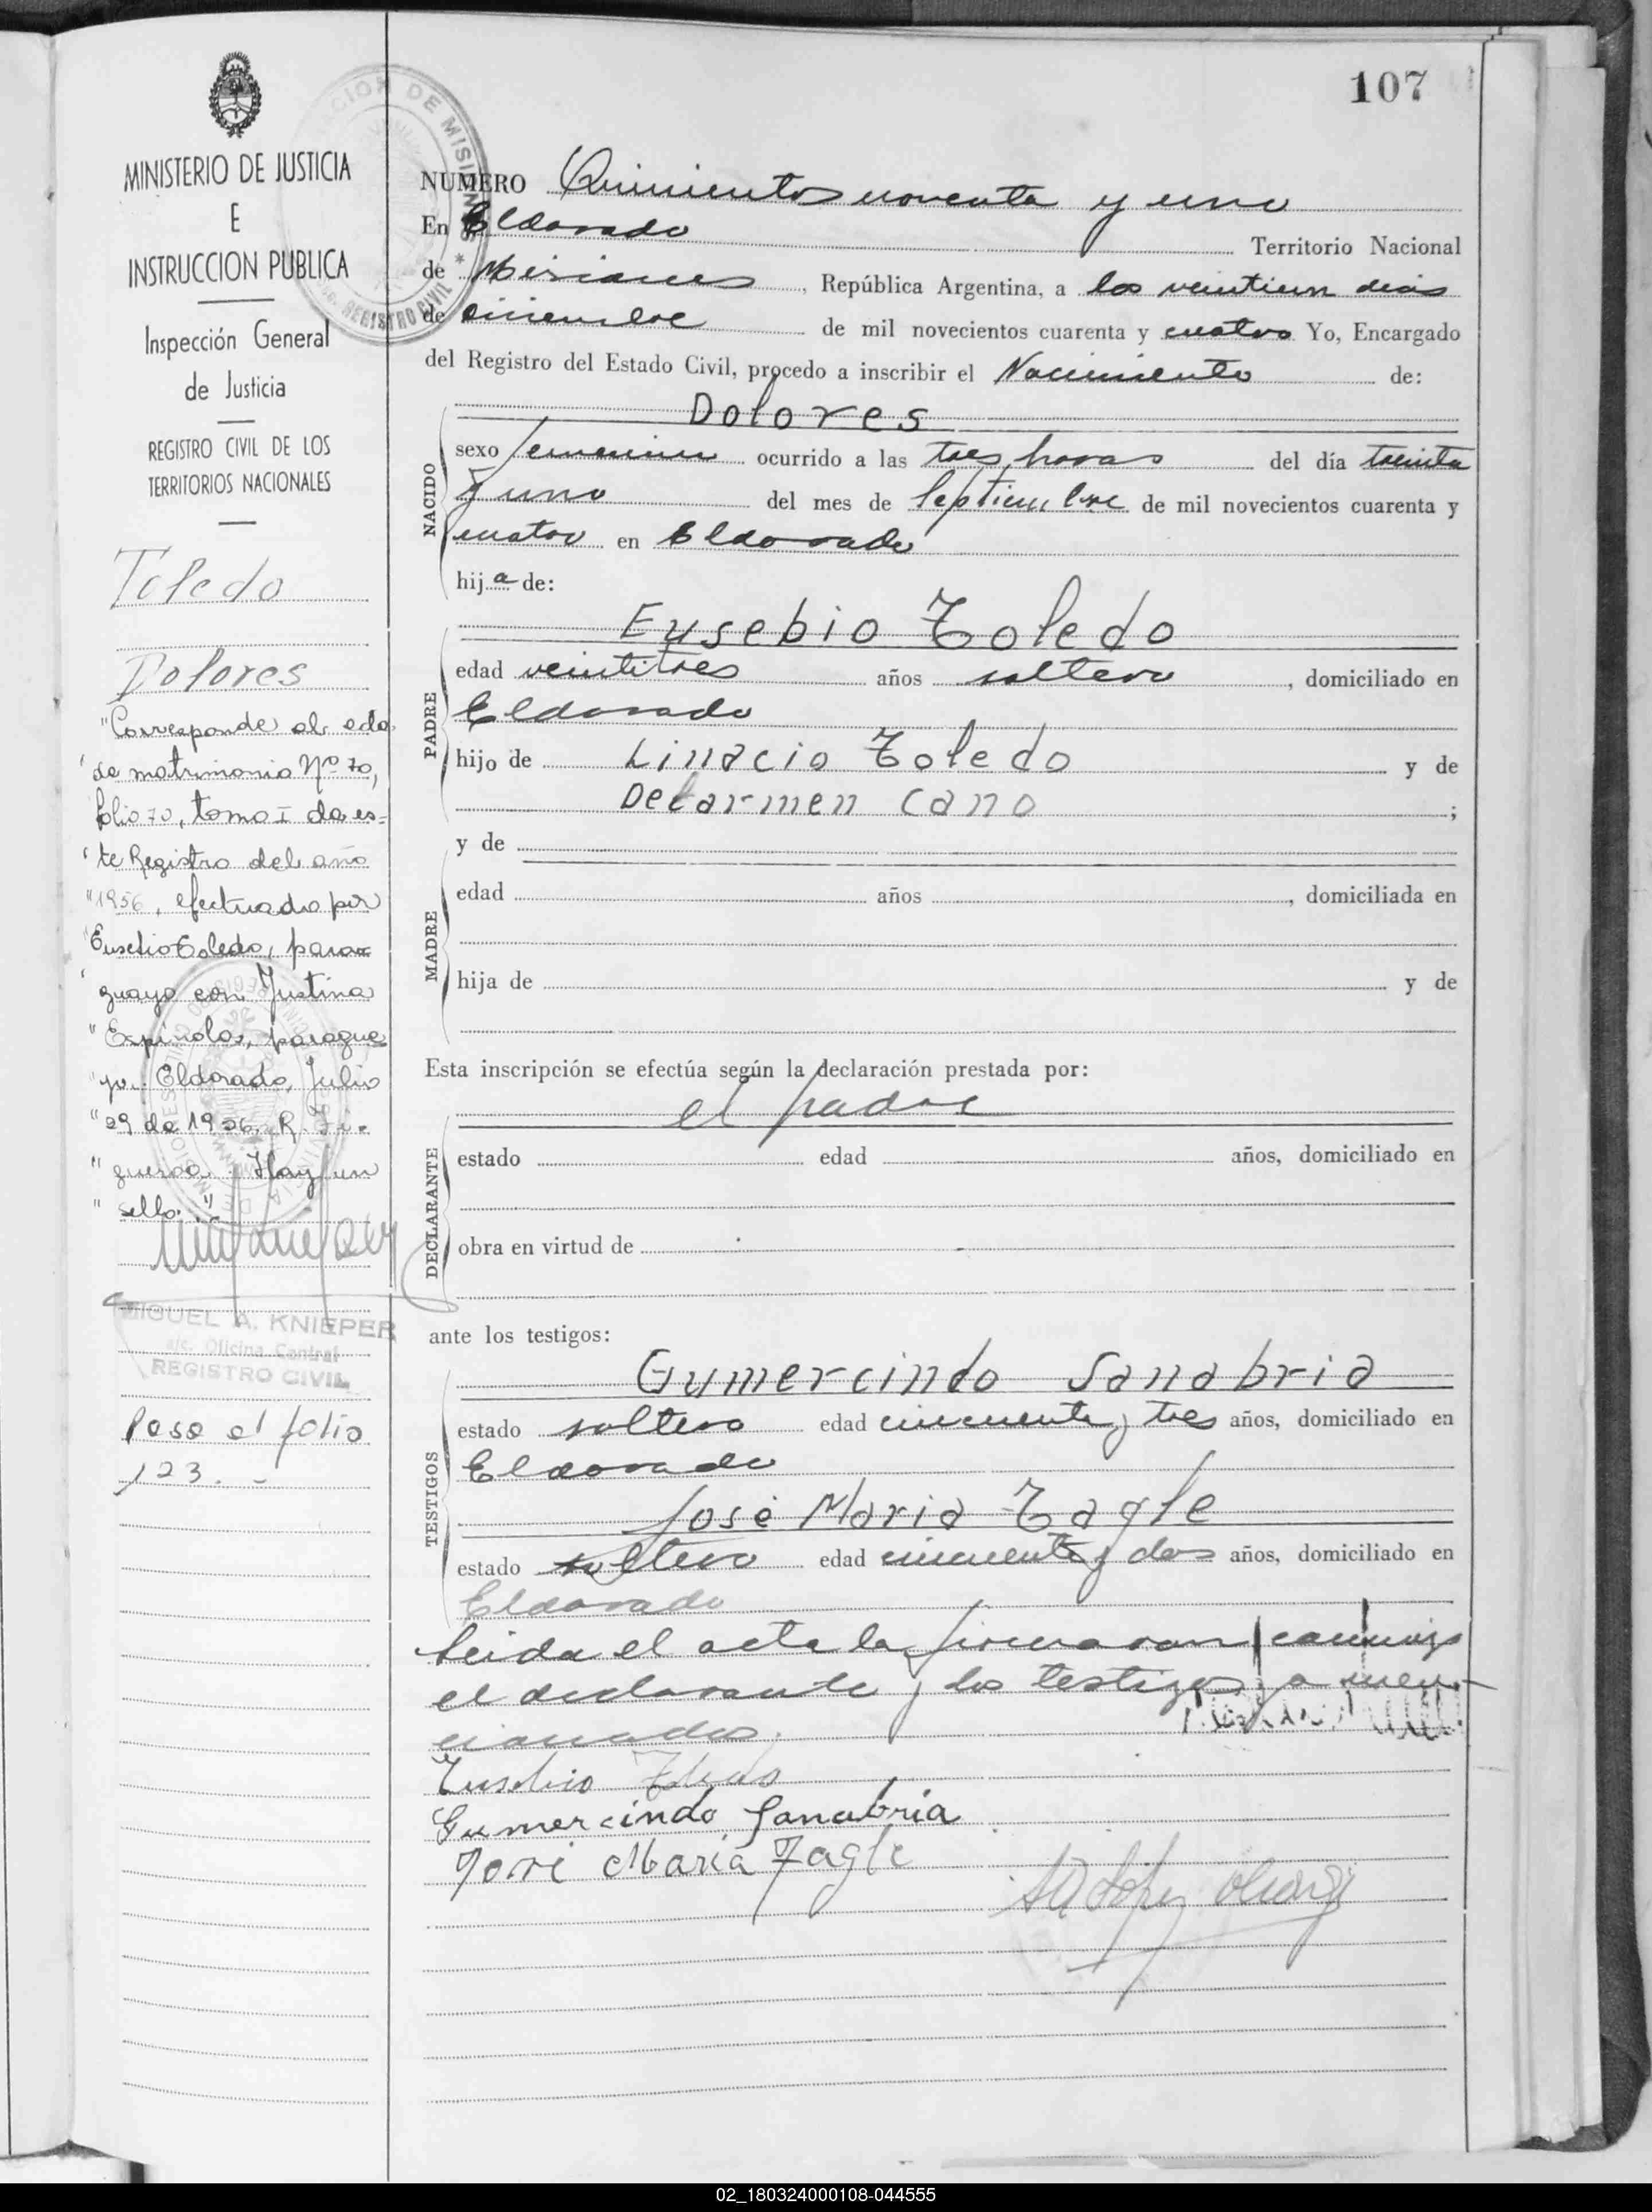 107
MINISTERIO DE JUSTICIA
E
INSTRUCCION PUBLICA
Inspección General
de Justicia
REGISTRO CIVIL DE LOS
TERRITORIOS NACIONALES
Toledo
Dolores
"Corresponde al acta
"de matrimonio Nº 70,
folio 70, tomo I de es=
"te Registro del año
"1956, efectuado por
"Eusebio Toledo, para=
"guayo con Justina
"Espínola, paragua
"ya. Eldorado, Julio
"29 de 1956. R. Fi=
"gueroa. Hay un
"sello."
MIGUEL A. KNIEPER
a/c. Oficina Central
REGISTRO CIVIL
Pasa al folio
123.-
NUMERO Quinientos noventa y uno
En Eldorado Territorio Nacional
de Misiones, República Argentina, a los veintiun dias
de diciembre de mil novecientos cuarenta y cuatro Yo, Encargado
del Registro del Estado Civil, procedo a inscribir el Nacimiento de:
Dolores
NACIDO
sexo femenino ocurrido a las tres horas del día treinta
y uno del mes de septiembre de mil novecientos cuarenta y
cuatro en Eldorado
hija de:
Eusebio Toledo
PADRE
edad veintitres años soltero, domiciliado en
Eldorado
hijo de Linacio Toledo y de
Delarmen Cano;
y de
MADRE
edad años, domiciliada en
hija de y de
Esta inscripción se efectúa según la declaración prestada por:
el padre
DECLARANTE
estado edad años, domiciliado en
obra en virtud de
ante los testigos:
Gumercindo Sanabria
TESTIGOS
estado soltero edad cincuenta y tres años, domiciliado en
Eldorado
José Maria Tagle
estado soltero edad cincuenta y dos años, domiciliado en
Eldorado
Leida el acta la firmaron conmigo
el declarante y los testigos ya men-
cionados.
Eusebio Toledo
Gumercindo Sanabria
José Maria Tagle
02_180324000108-044555